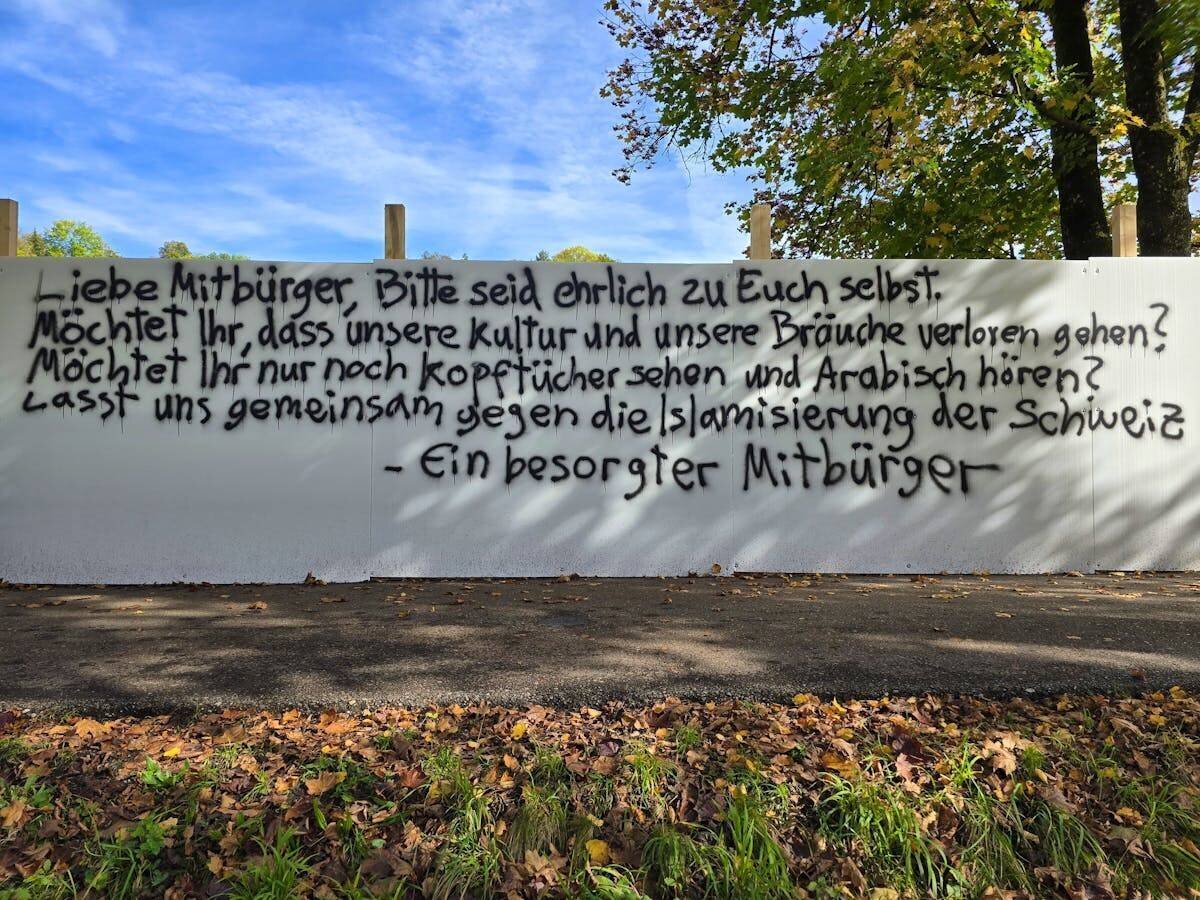 Liebe Mitbürger, Bitte seid ehrlich zu Euch selbst.
Möchtet Ihr, dass unsere Kultur und unsere Bräuche verloren gehen?
Möchtet Ihr nur noch Kopftücher sehen und Arabisch hören?
Lasst uns gemeinsam gegen die Islamisierung der Schweiz
- Ein besorgter Mitbürger